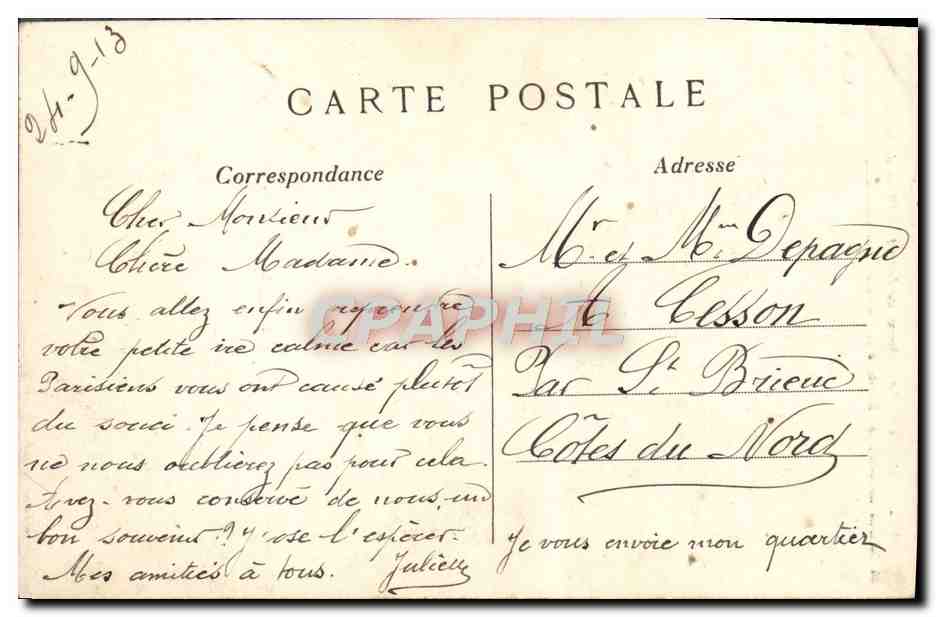 24-9-13
CARTE POSTALE
Correspondance
Cher Monsieur
Chère Madame.
Vous allez enfin reprendre
votre petite vie calme car les
Parisiens vous ont causé plutôt
du souci. Je pense que vous
ne nous oublierez pas pour cela.
Avez-vous conservé de nous, un
bon souvenir? J'ose l'espérer.
Mes amitiés à tous. Juliette
Adresse
Mr et Mme Depagne
A Cesson
Par St Brieuc
Côtes du Nord
Je vous envoie mon quartier
CPAPHIL